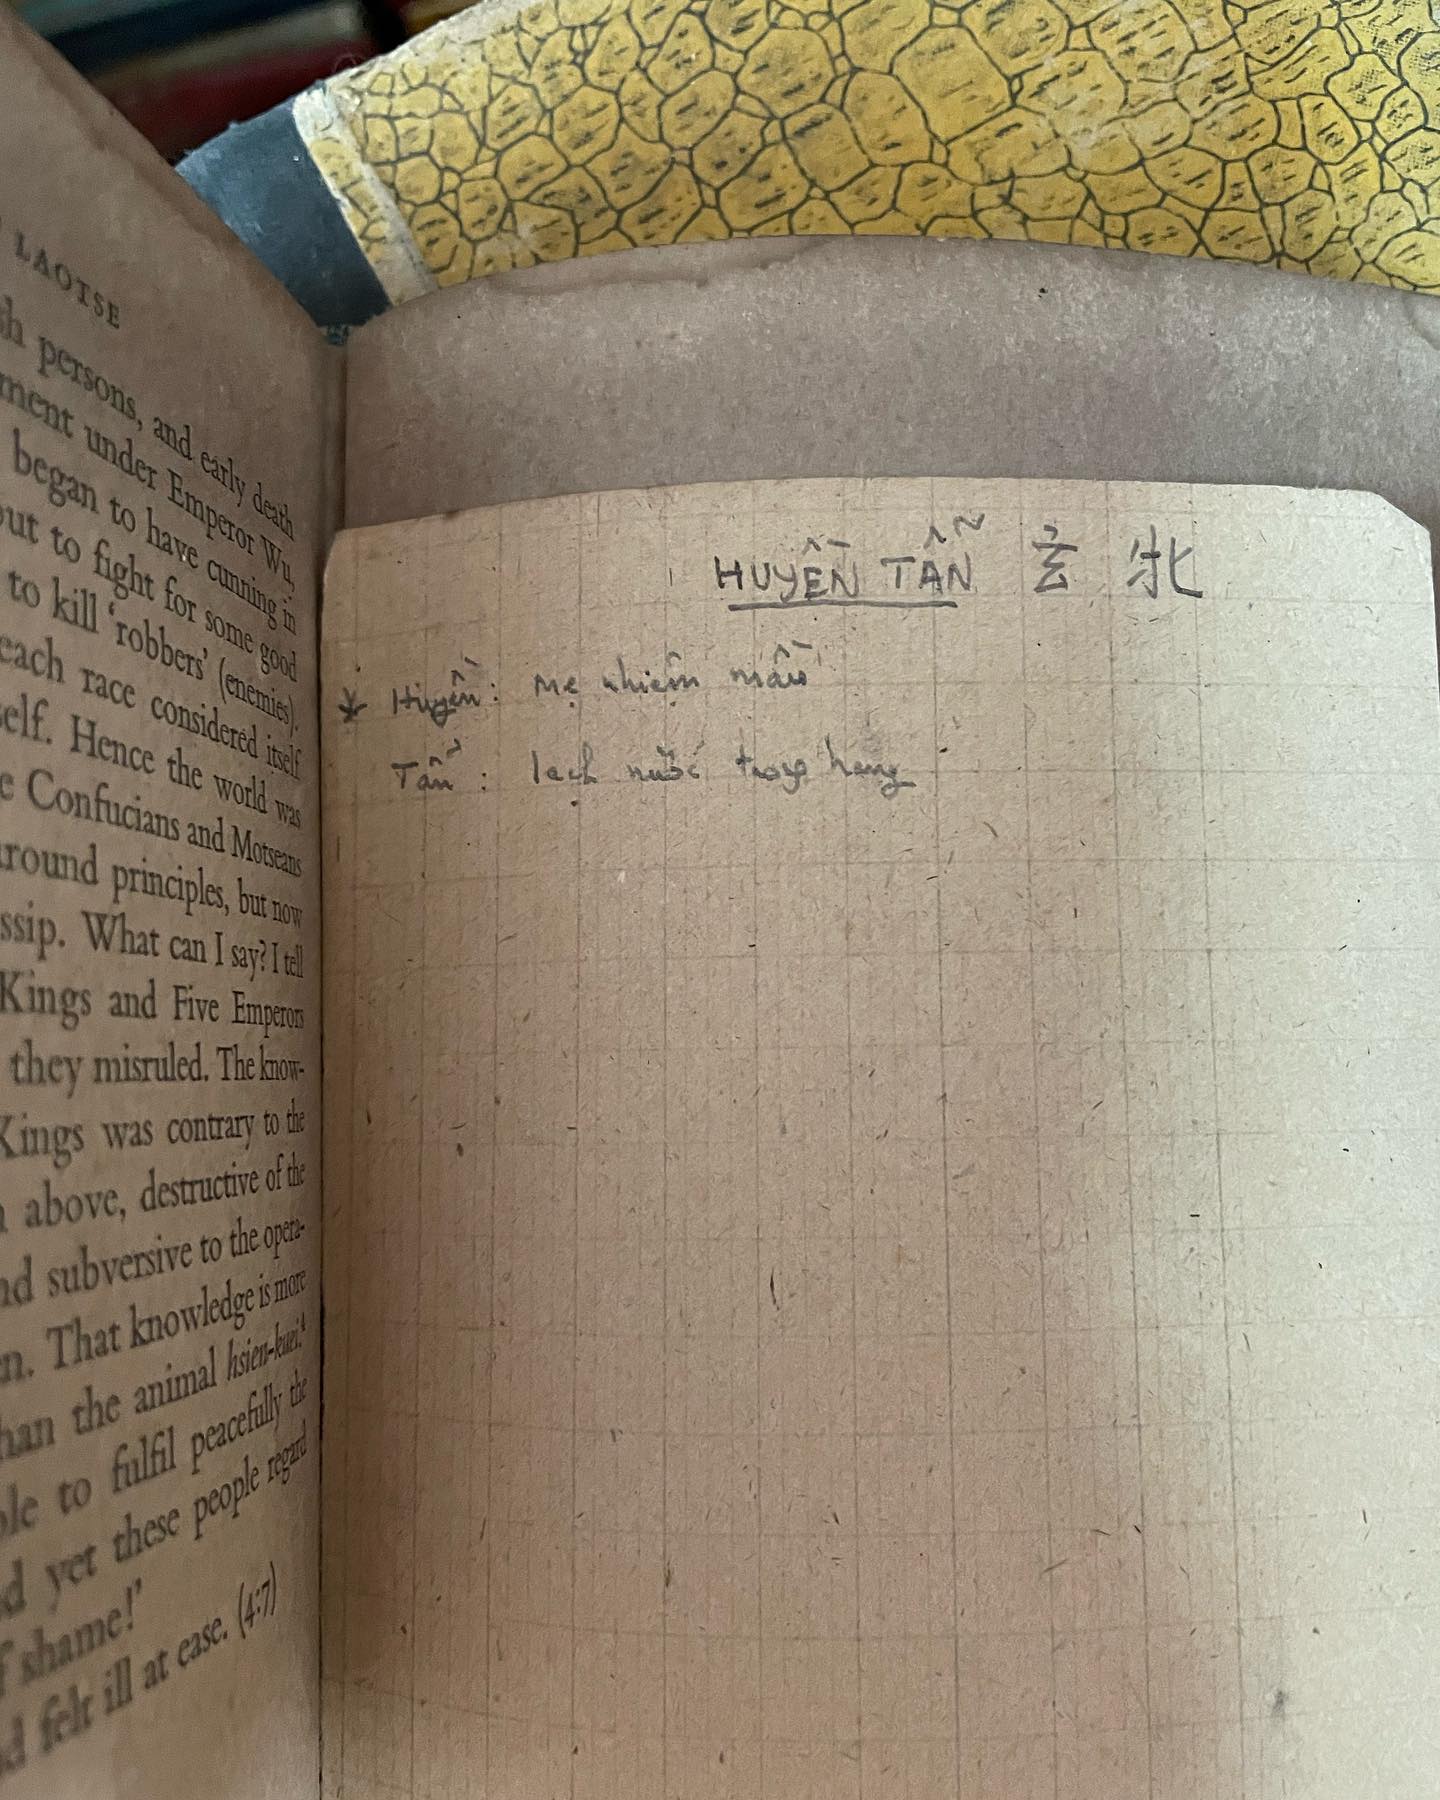 LAOTSE
persons, and early death
under Emperor Wu,
began to have cunning in
out to fight for some good
to kill 'robbers' (enemies).
each race considered itself
self. Hence the world was
Confucians and Motseans
around principles, but now
What can I say? I tell
Kings and Five Emperors
they misruled. The know-
Kings was contrary to the
above, destructive of the
subversive to the opera-
That knowledge is more
than the animal hsien-kuei.⁴
to fulfil peacefully the
yet these people regard
shame!'
felt ill at ease. (4:7)
HUYỀN TẪN 玄 牝
* Huyền: mẹ nhiệm mầu
Tẫn: lạch nước trong hang